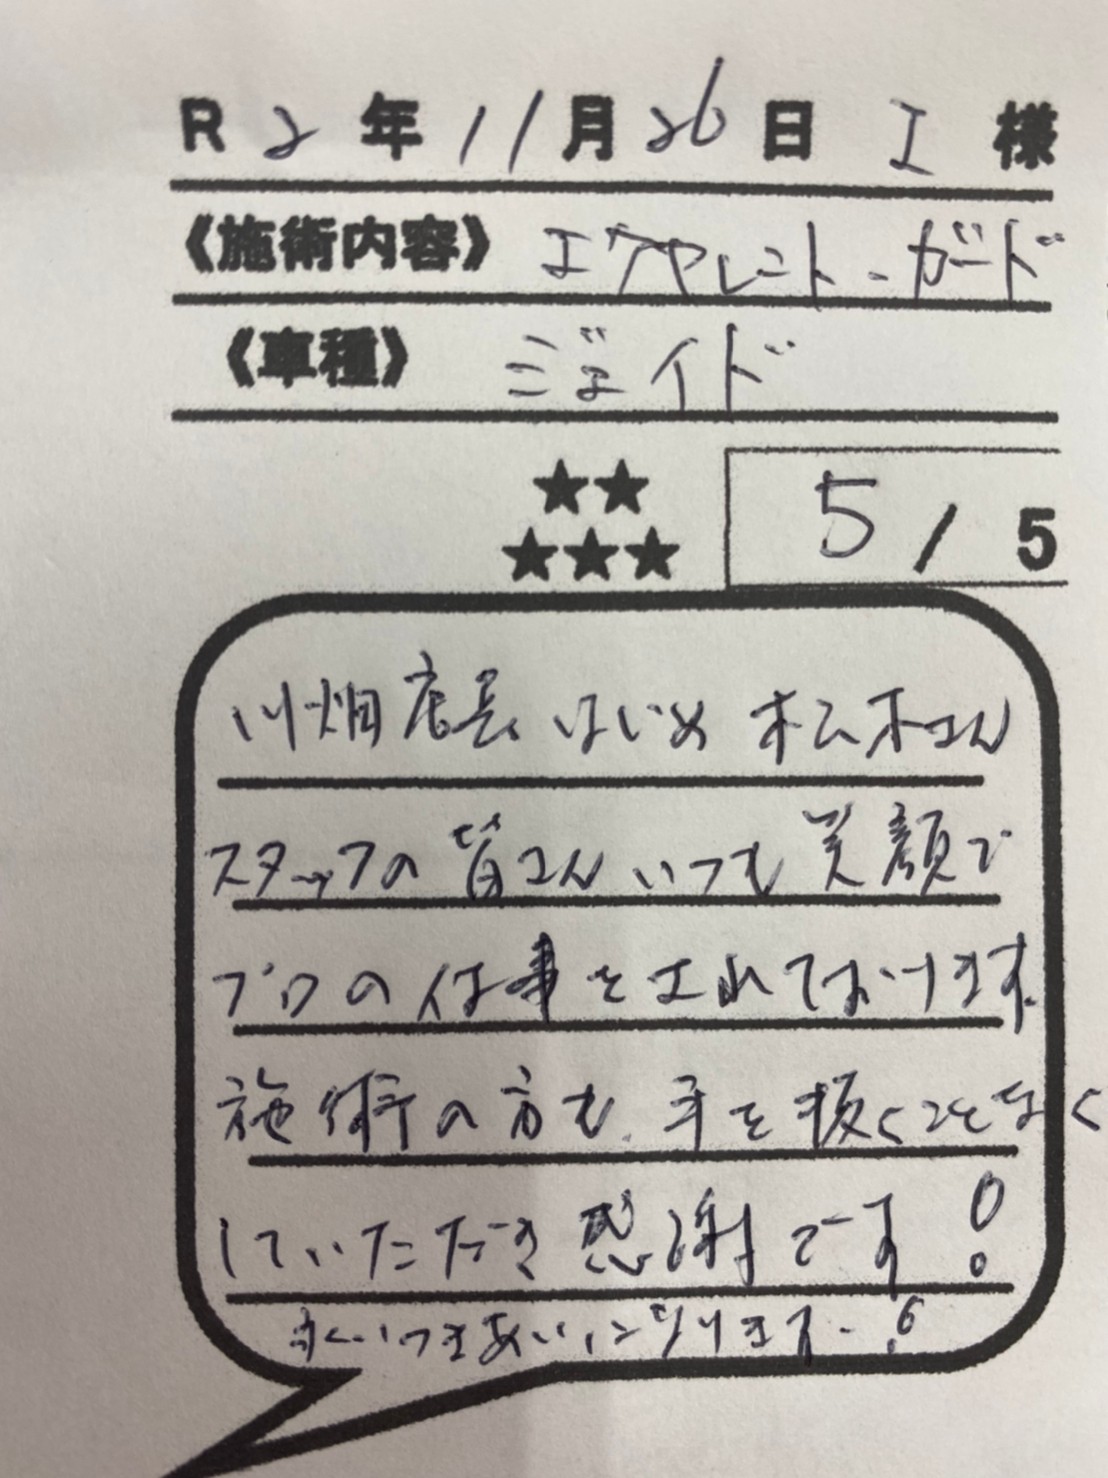 R2年11月26日 I様
《施術内容》 エクヤレント・ガード
《車種》 ジェイド
★★
★★★
5/5
川畑店長はじめ 松木さん
スタッフの皆さんいつも笑顔で
プロの仕事をされております。
施術の方も、手を抜くことなく
していただき感謝です!
永いつきあいになります。!